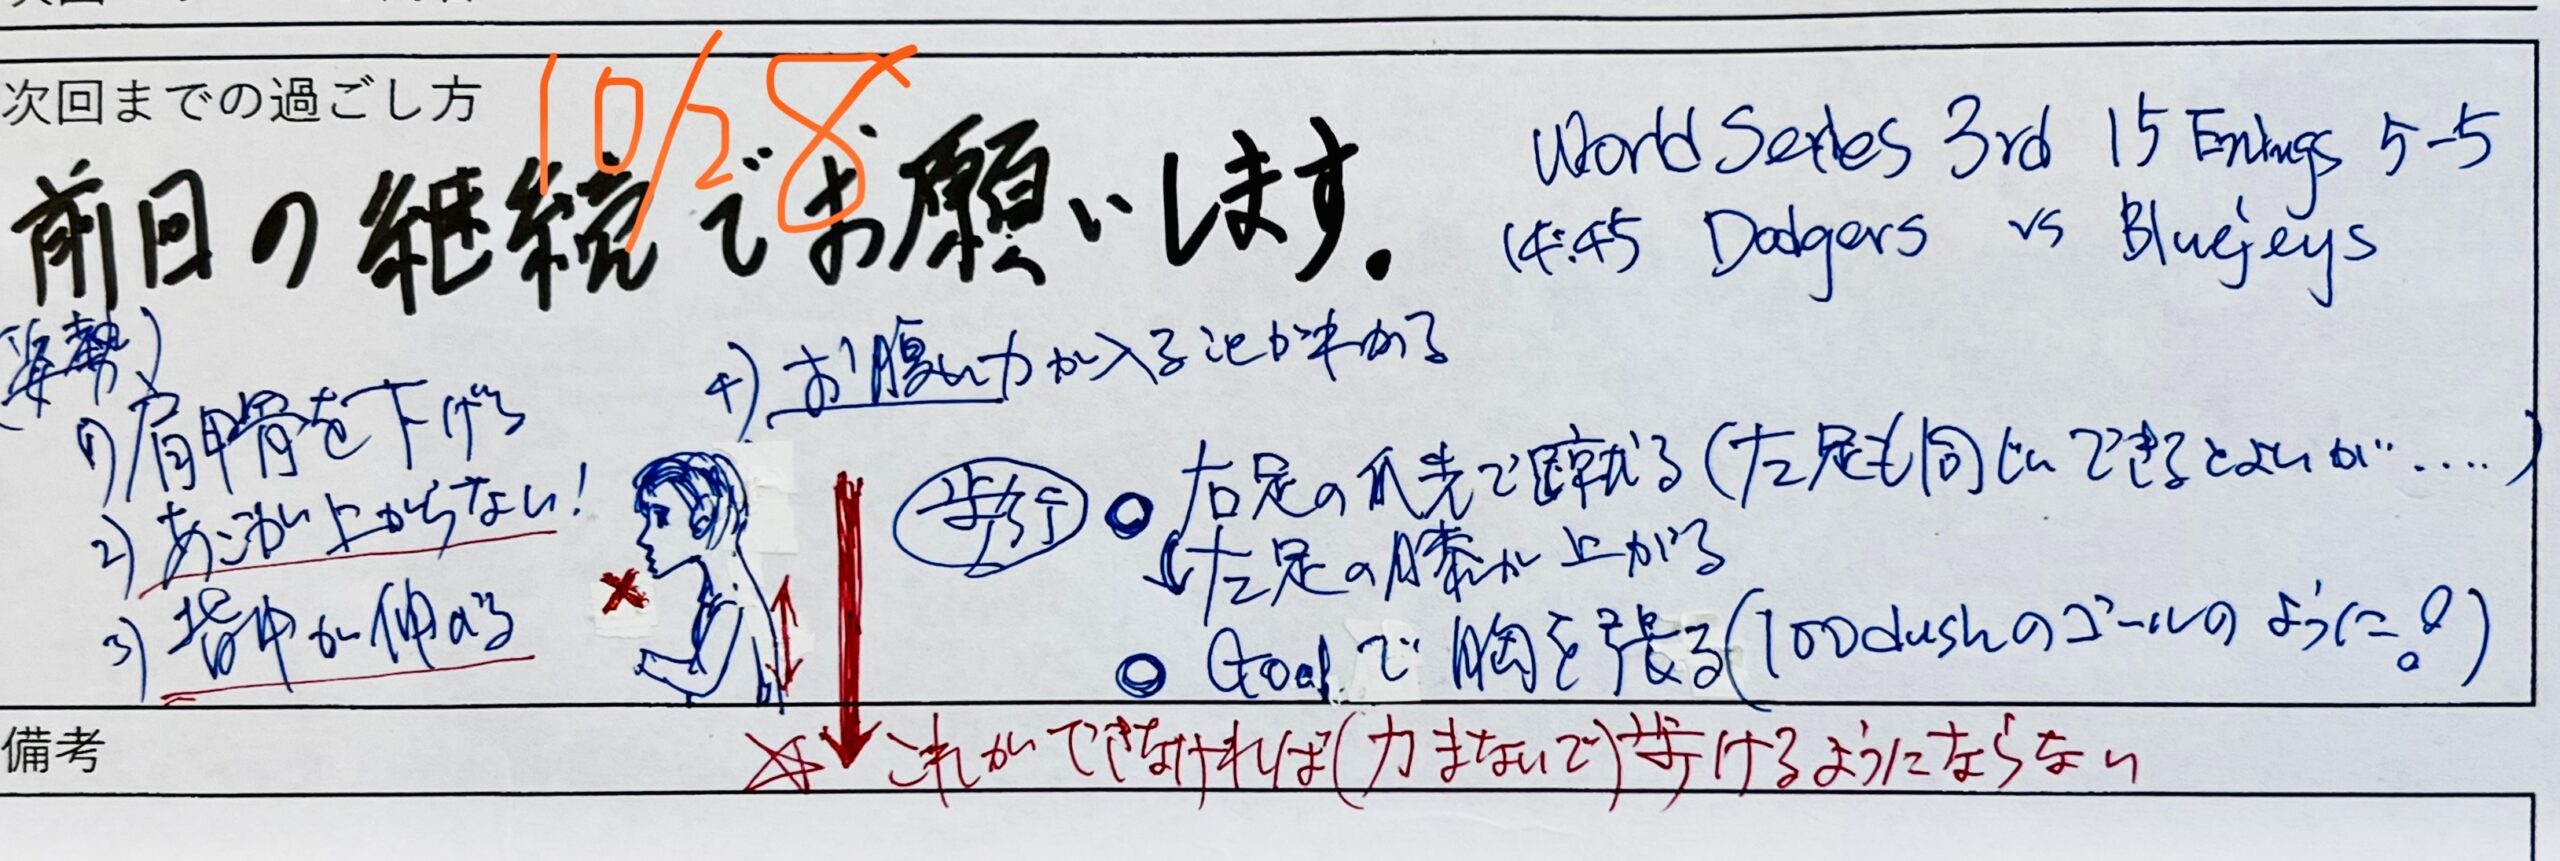 次回までの過ごし方
10/28
前回の継続でお願いします。
World Series 3rd 15 Enings 5-5
14:45 Dodgers vs Bluejeys
(姿勢)
1) 肩甲骨を下げる
2) あごが上がらない!
3) 背中が伸びる
4) お腹に力が入ることが半かる
歩行
右足の爪先で蹴る(左足も同じにできるとよいが‥‥)
↓左足の膝が上がる
Goalで胸を張る(100dushのゴールのように?)
備考
☆これができなければ(力まないで)歩けるようにならない